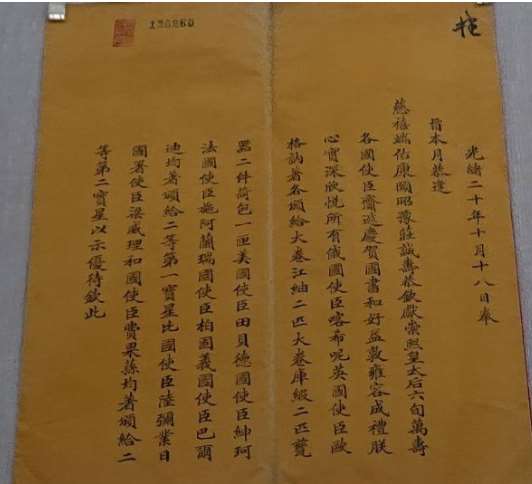 光緒二十年十月十八日奉
旨本月恭逢
慈禧端佑康頤昭豫莊誠壽恭欽獻崇熙皇太后六旬萬壽
各國使臣齎遞慶賀國書和好益敦雍容成禮朕
心實深欣悅所有俄國使臣喀希呢英國使臣歐
格訥著各頒給大卷江紬二匹大卷庫緞二匹甆
器二件荷包一匣美國使臣田貝德國使臣紳珂
法國使臣施阿蘭瑞國使臣柏固義國使臣巴爾
迪均著頒給二等第一寶星比國使臣陸彌業日
國署使臣梁威理和國使臣賞果蓀均著頒給二
等第二寶星以示優待欽此